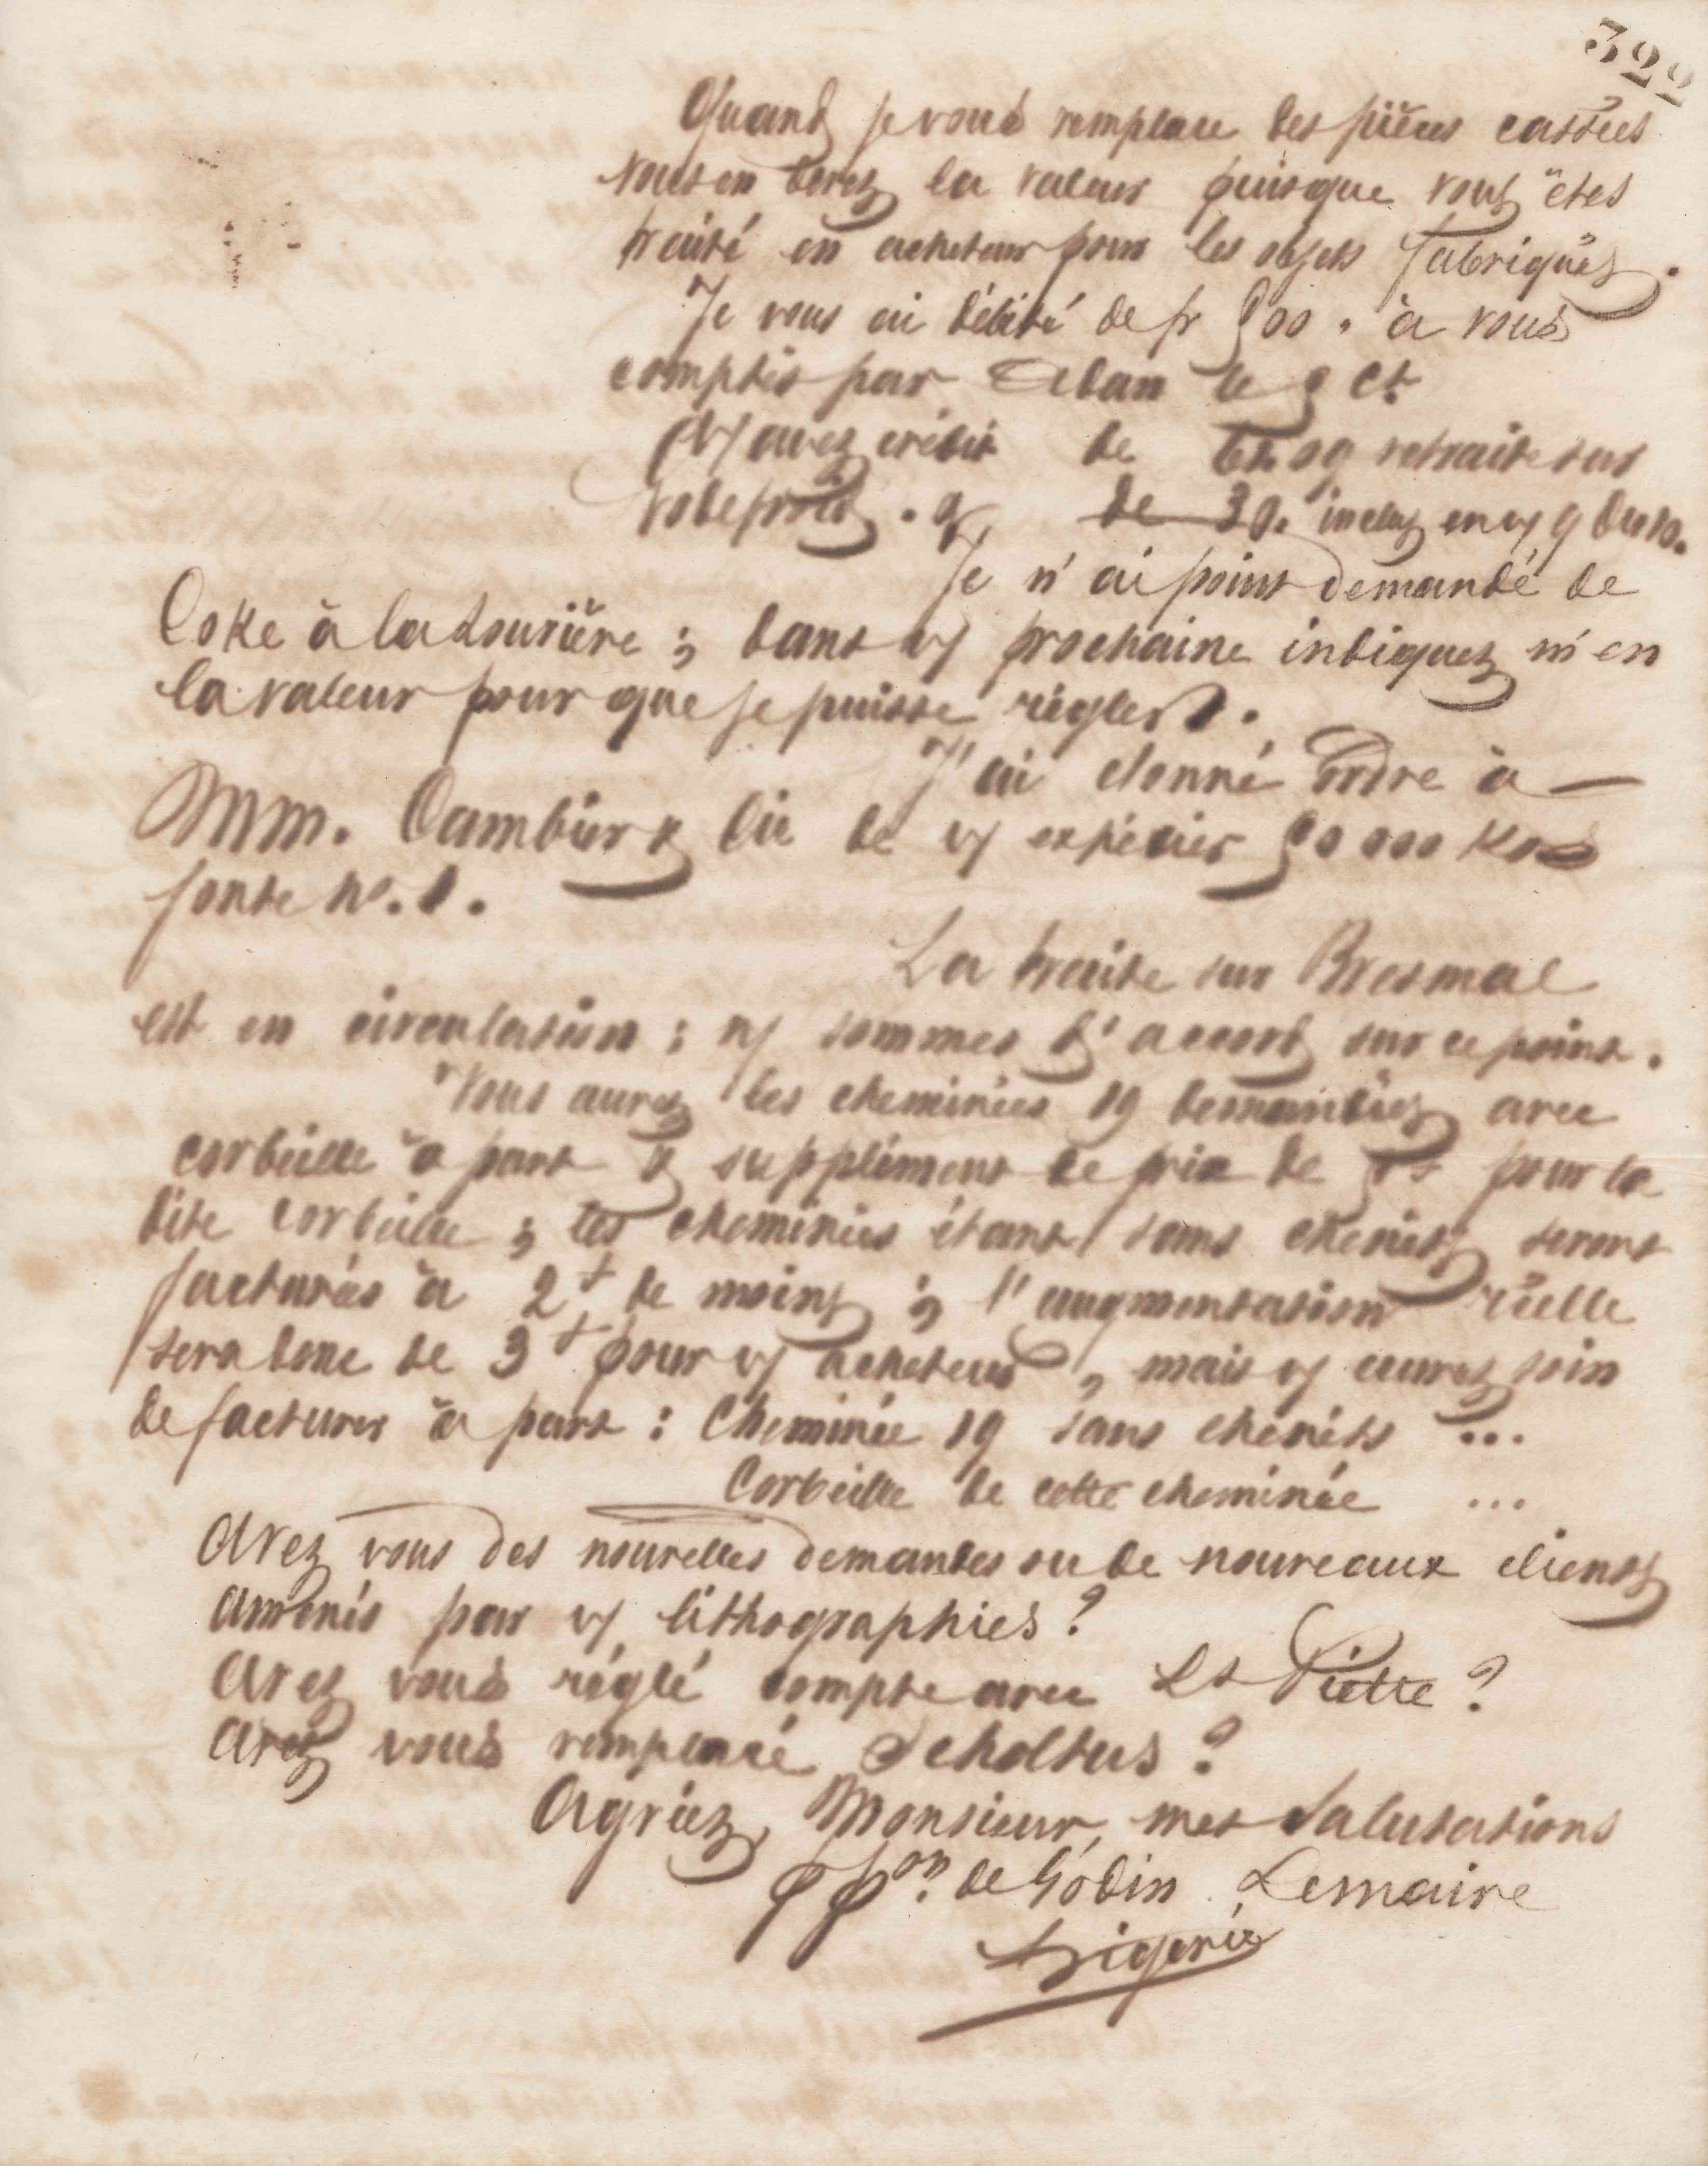 322
Quand je vous remplace des pièces cassées
vous en devez la valeur puisque vous êtes
traité en acheteur pour les objets fabriqués.
Je vous ai débité de fr 500. à vous
comptés par Alban le 5 Ct
vs avez crédit de retraite sur
de 30. inclus en vs 9
Je n'ai point demandé de
Coke à la Louvière ; dans vs prochaine indiquez m'en
la valeur pour que je puisse régler.
J'ai donné ordre à —
MM. Cambier & Cie de vs expédier 50 000 Kos
fonte No. 1.
La traite sur Bresmal
est en circulation ; ns sommes d'accord sur ce point.
Vous aurez les cheminées 19 demandées avec
corbeille à part & supplément de prix de 5 f pour la
dite corbeille ; les cheminées étant sans chenets seront
facturées à 2 f de moins ; l'augmentation réelle
sera donc de 3 f pour vs acheteurs, mais vs aurez soin
de facturer à part : Cheminée 19 sans chenets ...
Corbeille de cette cheminée ...
Avez vous des nouvelles demandes ou de nouveaux clients
amenés par vs lithographies ?
Avez vous réglé compte avec Lt Piette ?
Avez vous remplacé Scholtus ?
Agréez, Monsieur, mes Salutations
pp on. de Godin Lemaire